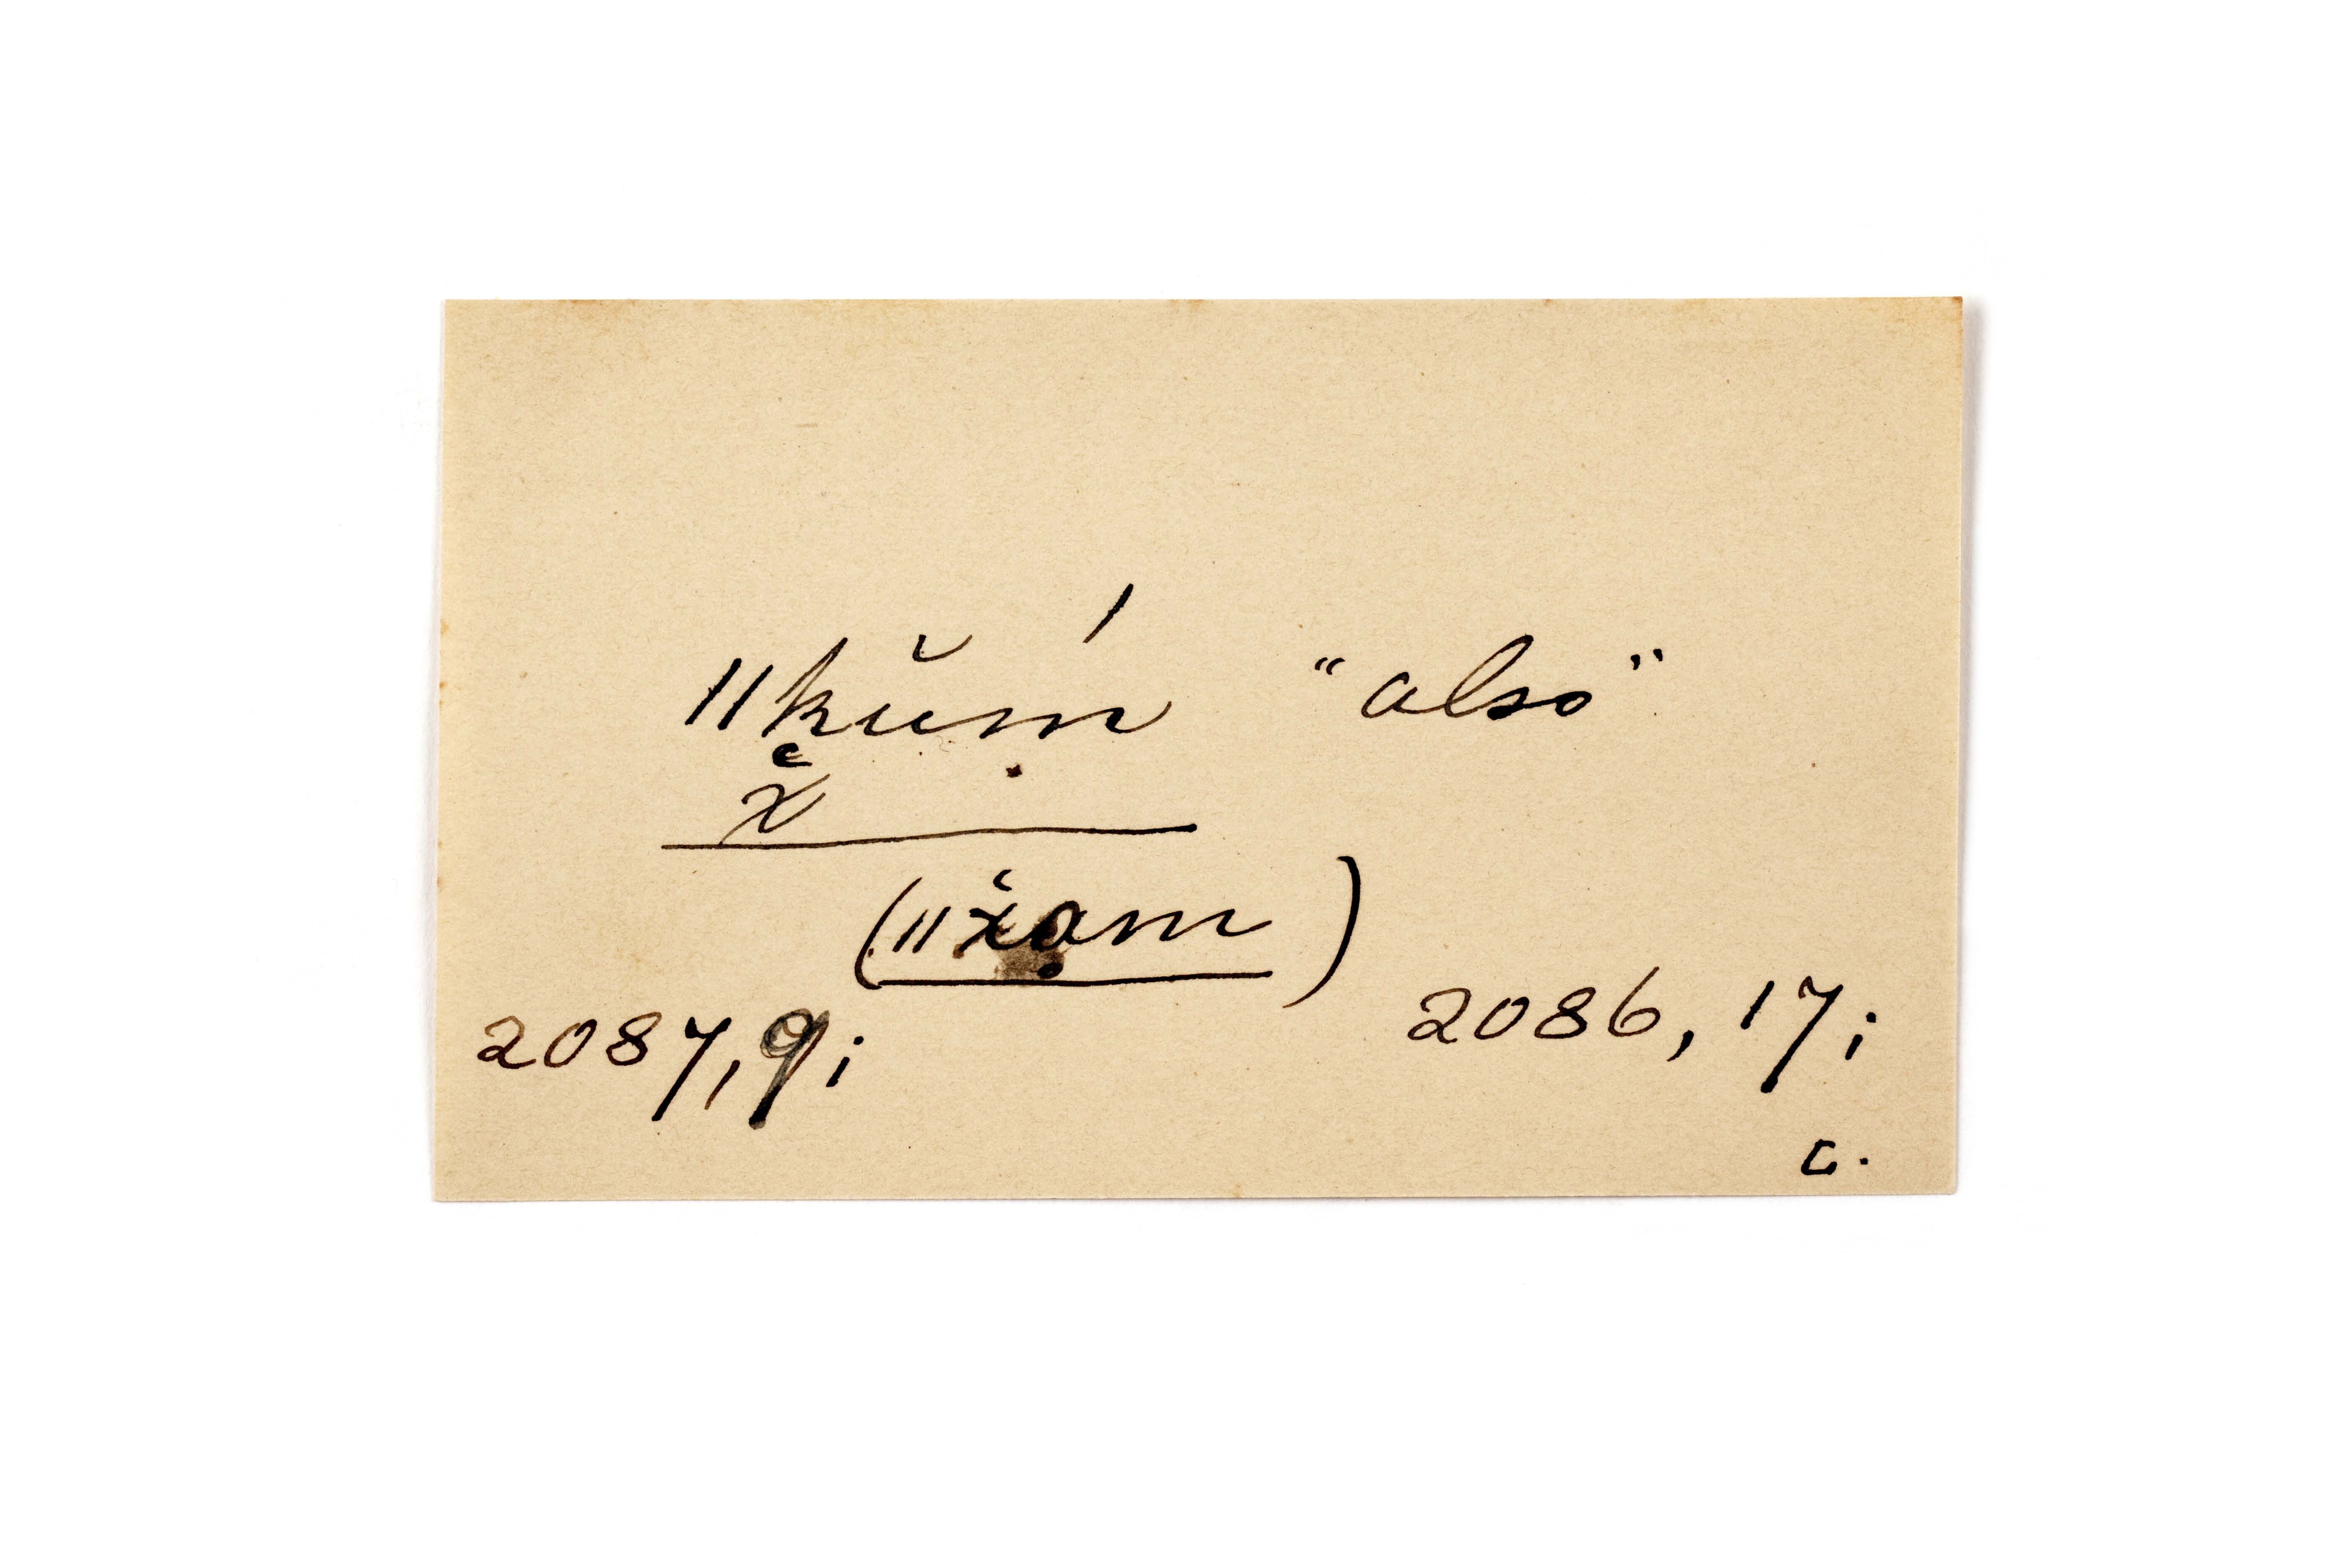 ǁkŭḿ "also"
x̆
(ǁx̆ọm)
2087,9; 2086,17;
C.